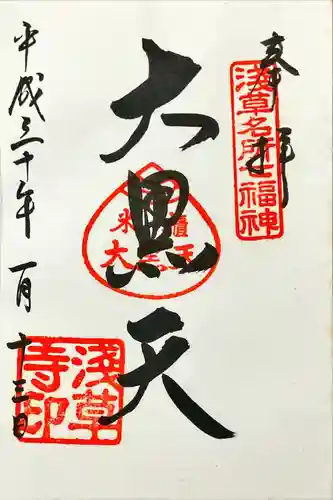 奉拝
浅草名所七福神
大黒天
米櫃
大黒天
平成三十年一月十三日
浅草寺印